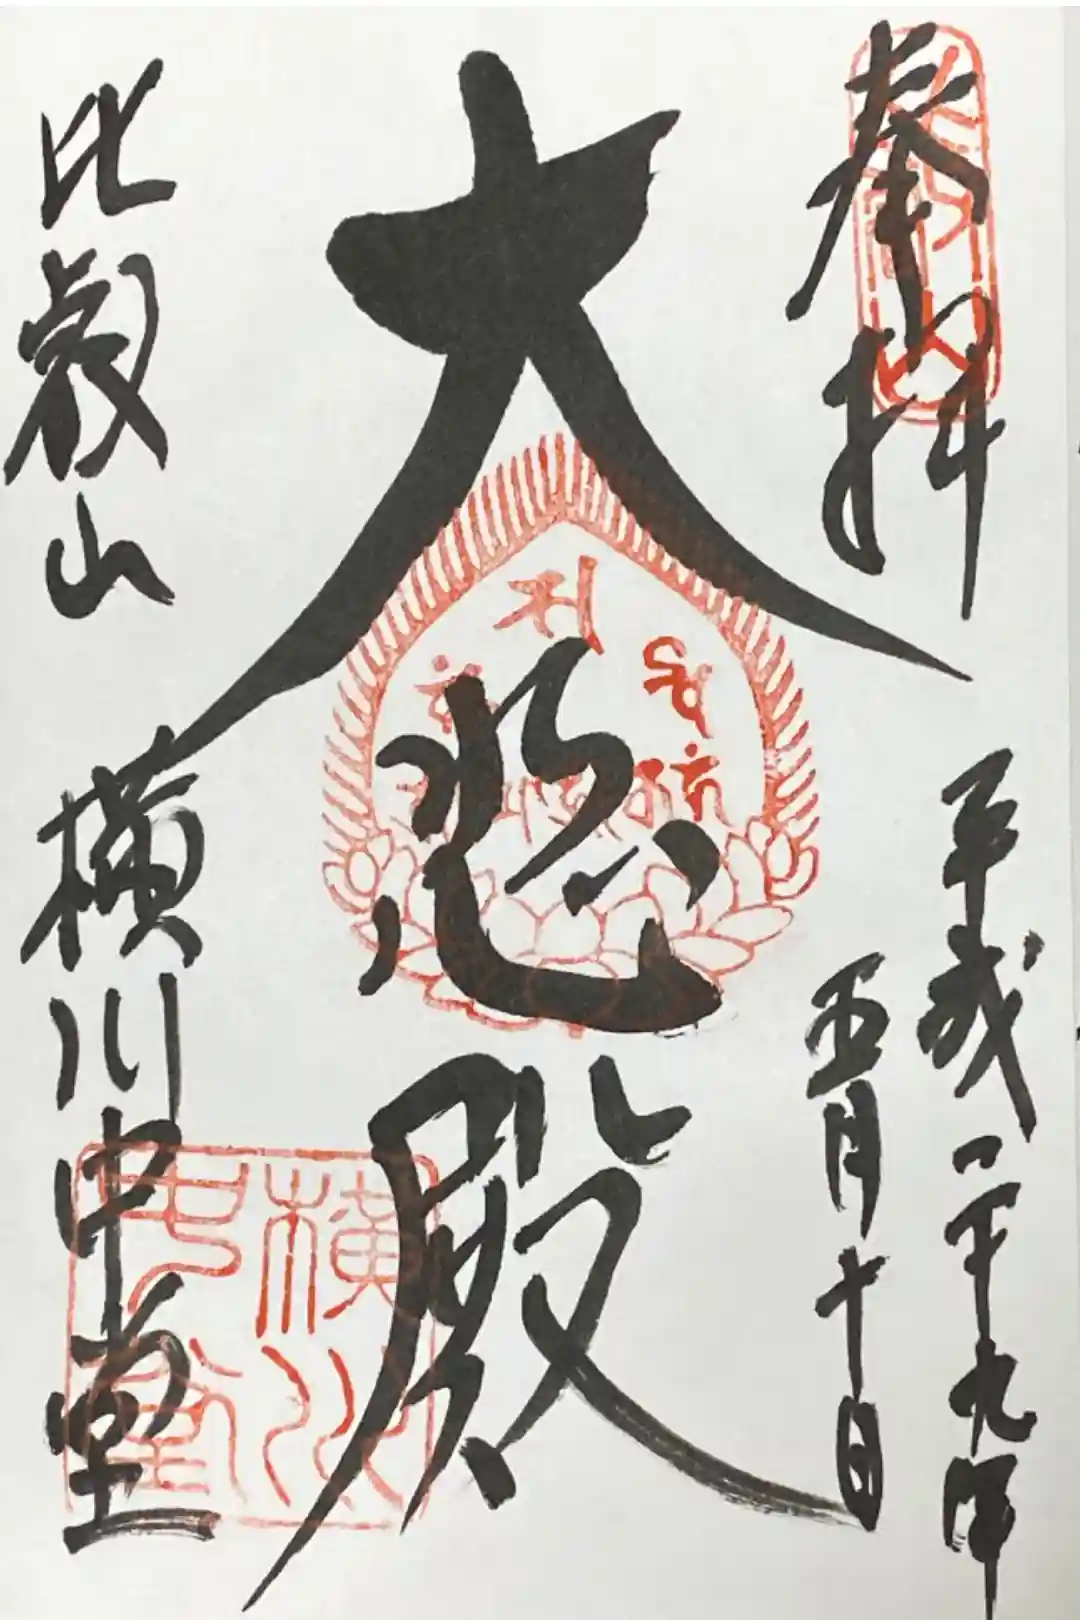 奉拝
平成二十九年
五月十日
大悲殿
比叡山
横川中堂
横川
中堂